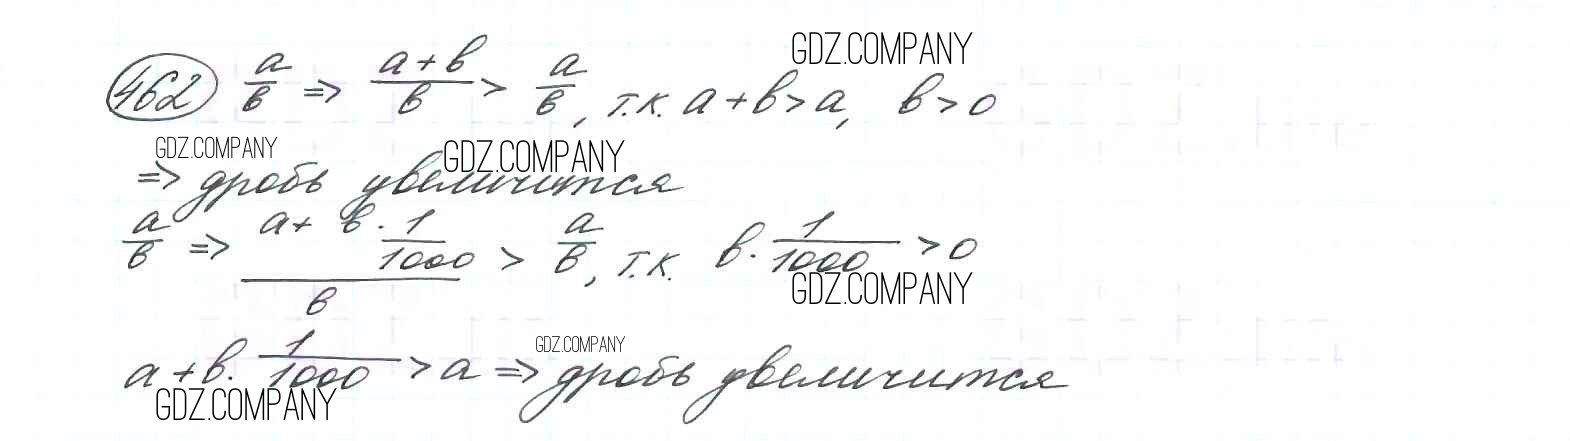 GDZ.COMPANY
462 a/в => (a+в)/в > a/в, т.к. a+в>a, в>0
GDZ.COMPANY GDZ.COMPANY
=> дробь увеличится
a/в => (a+ в·1/1000)/в > a/в, т.к. в·1/1000 >0
GDZ.COMPANY
GDZ.COMPANY
a+в·1/1000 >a => дробь увеличится
GDZ.COMPANY